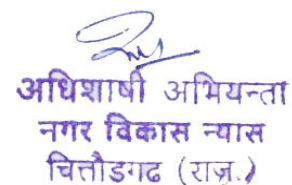 अधिशाषी अभियन्ता
नगर विकास न्यास
चित्तौडगढ (राज.)